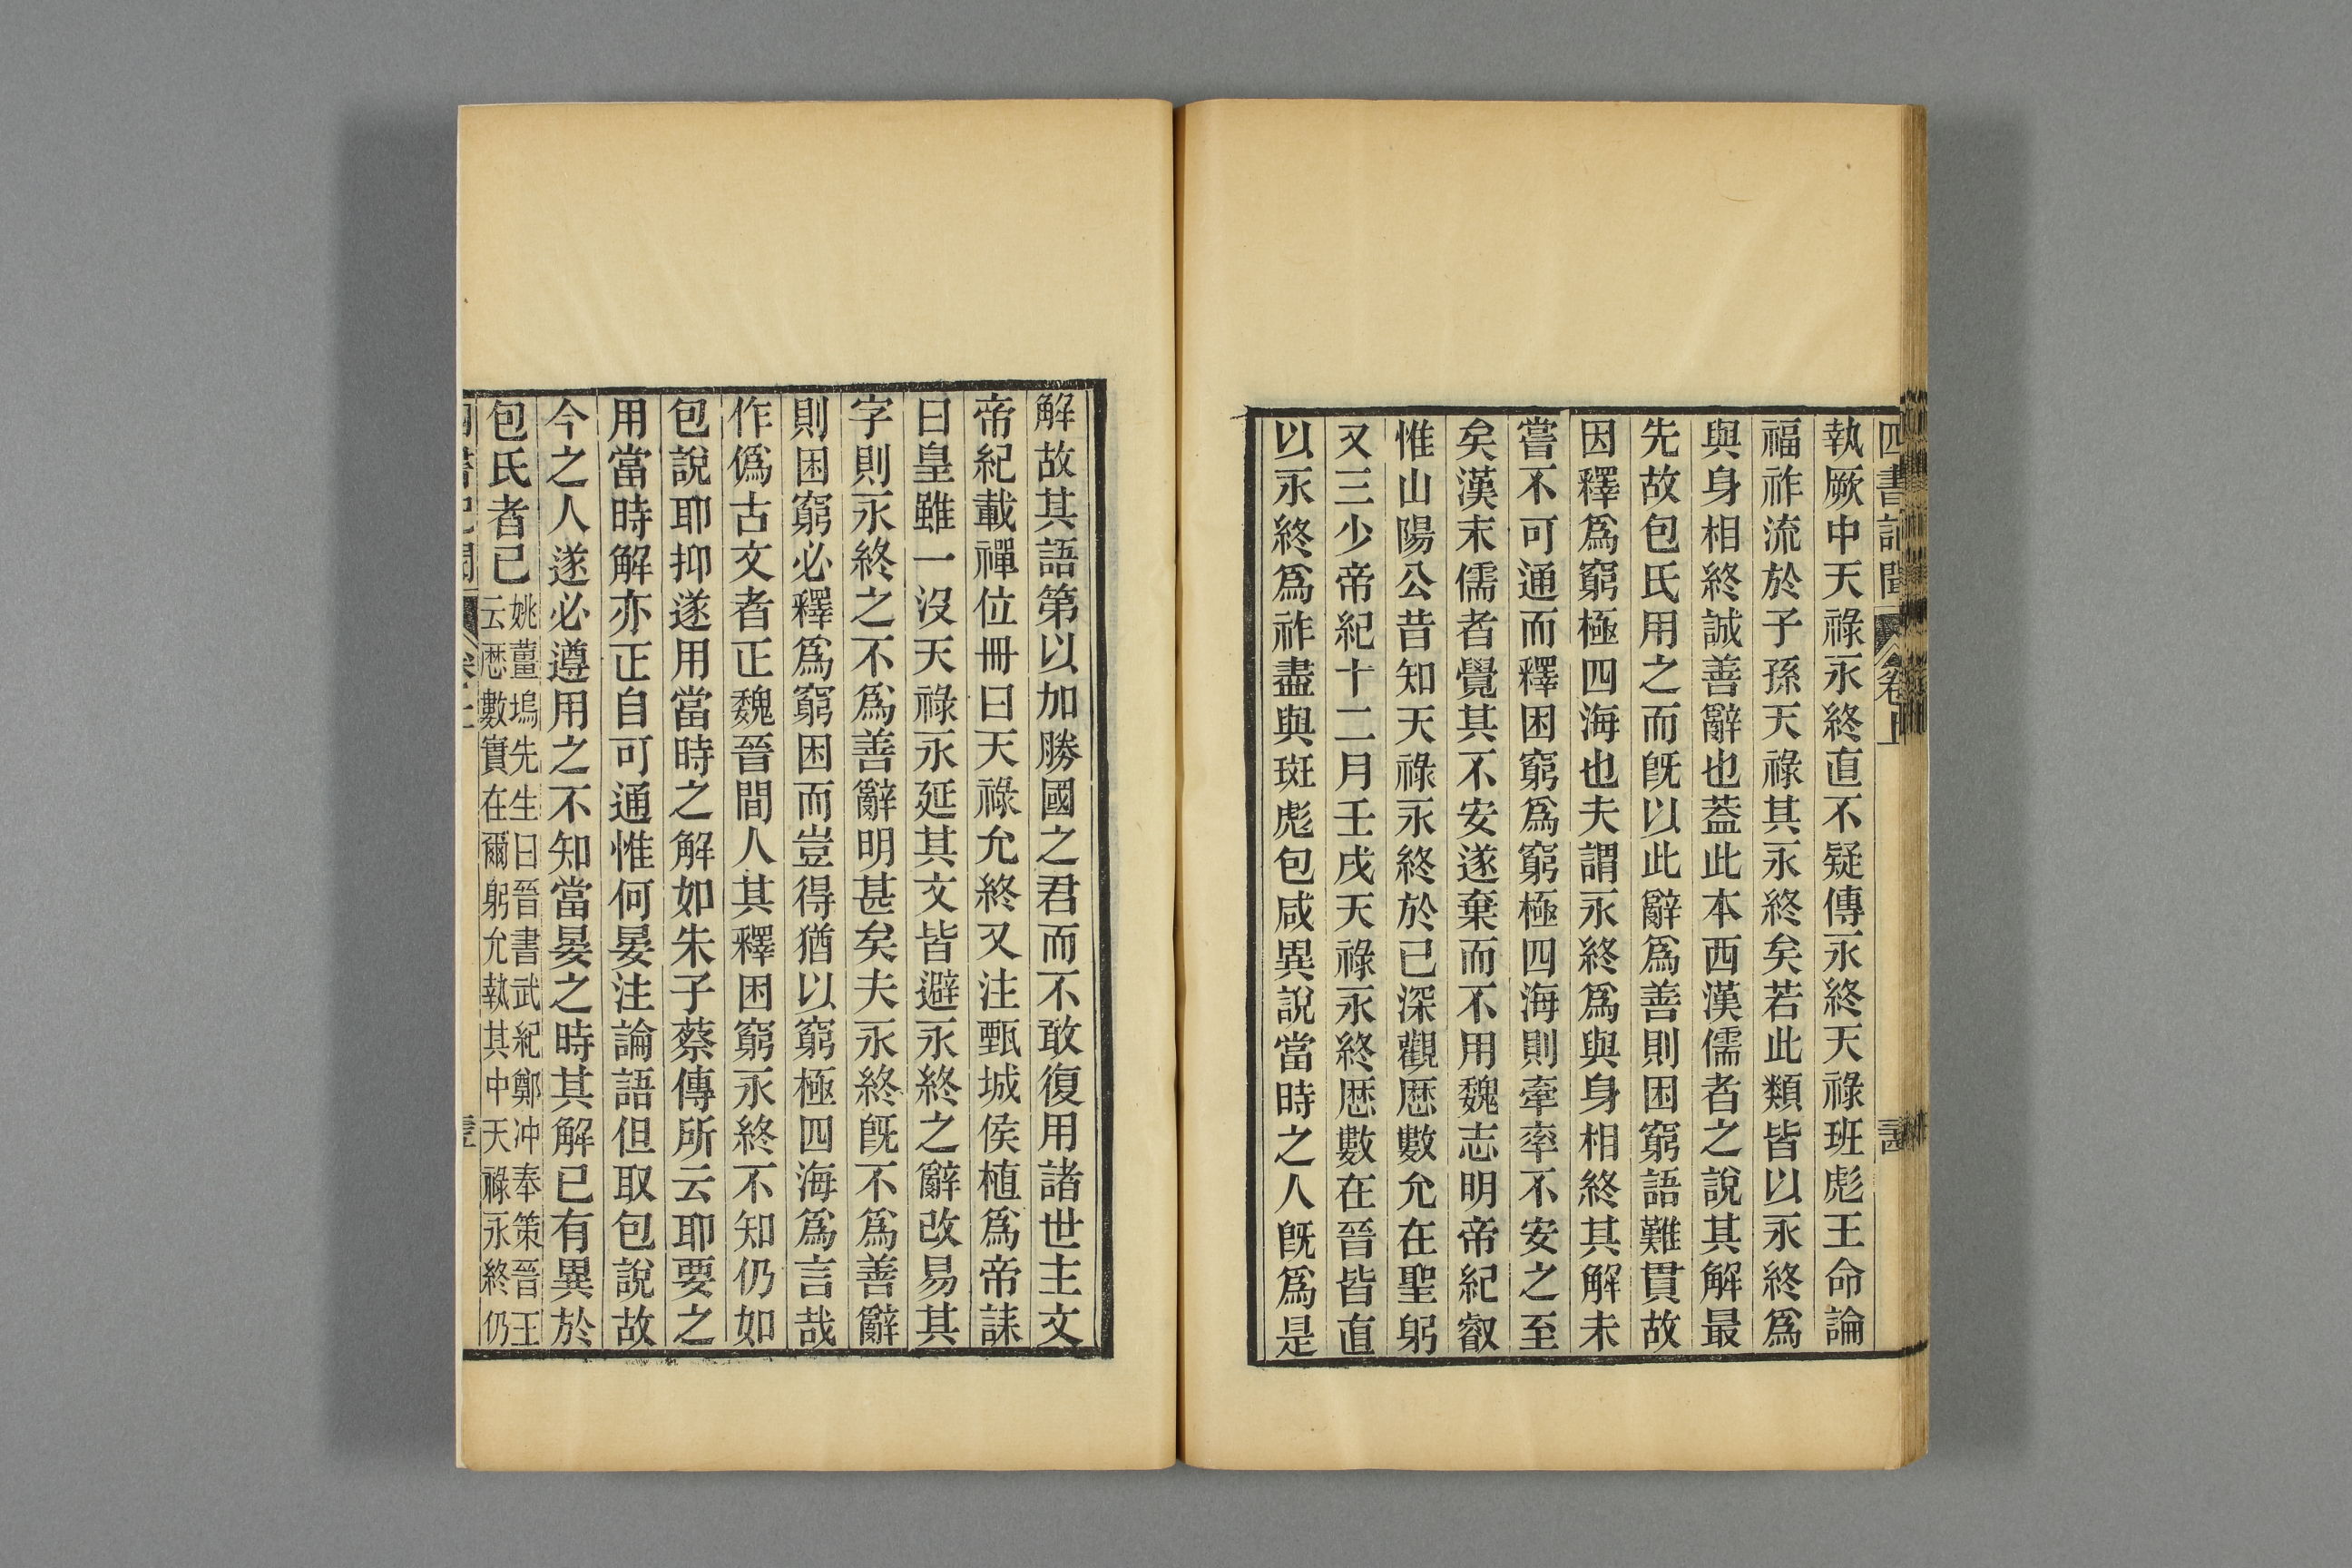 四書記聞 卷上 
執厥中天祿永終直不疑傳永終天祿班彪王命論
福祚流於子孫天祿其永終矣若此類皆以永終爲
與身相終誠善辭也蓋此本西漢儒者之說其解最
先故包氏用之而旣以此辭爲善則困窮語難貫故
因釋爲窮極四海也夫謂永終爲與身相終其解未
嘗不可通而釋困窮爲窮極四海則牽率不安之至
矣漢末儒者覺其不安遂棄而不用魏志明帝紀叡
惟山陽公昔知天祿永終於已深觀厯數允在聖躬
又三少帝紀十二月壬戌天祿永終厯數在晉皆直
以永終爲祚盡與班彪包咸異說當時之人旣爲是
解故其語第以加勝國之君而不敢復用諸世主文
帝紀載禪位冊曰天祿允終又注甄城侯植爲帝誄
曰皇雖一沒天祿永延其文皆避永終之辭改易其
字則永終之不爲善辭明甚矣夫永終旣不爲善辭
則困窮必釋爲窮困而豈得猶以窮極四海爲言哉
作僞古文者正魏晉間人其釋困窮永終不知仍如
包說耶抑遂用當時之解如朱子蔡傳所云耶要之
用當時解亦正自可通惟何晏注論語但取包說故
今之人遂必遵用之不知當晏之時其解已有異於
包氏者已
姚薑塢先生曰晉書武紀鄭冲奉策晉王
云厯數實在爾躬允執其中天祿永終仍